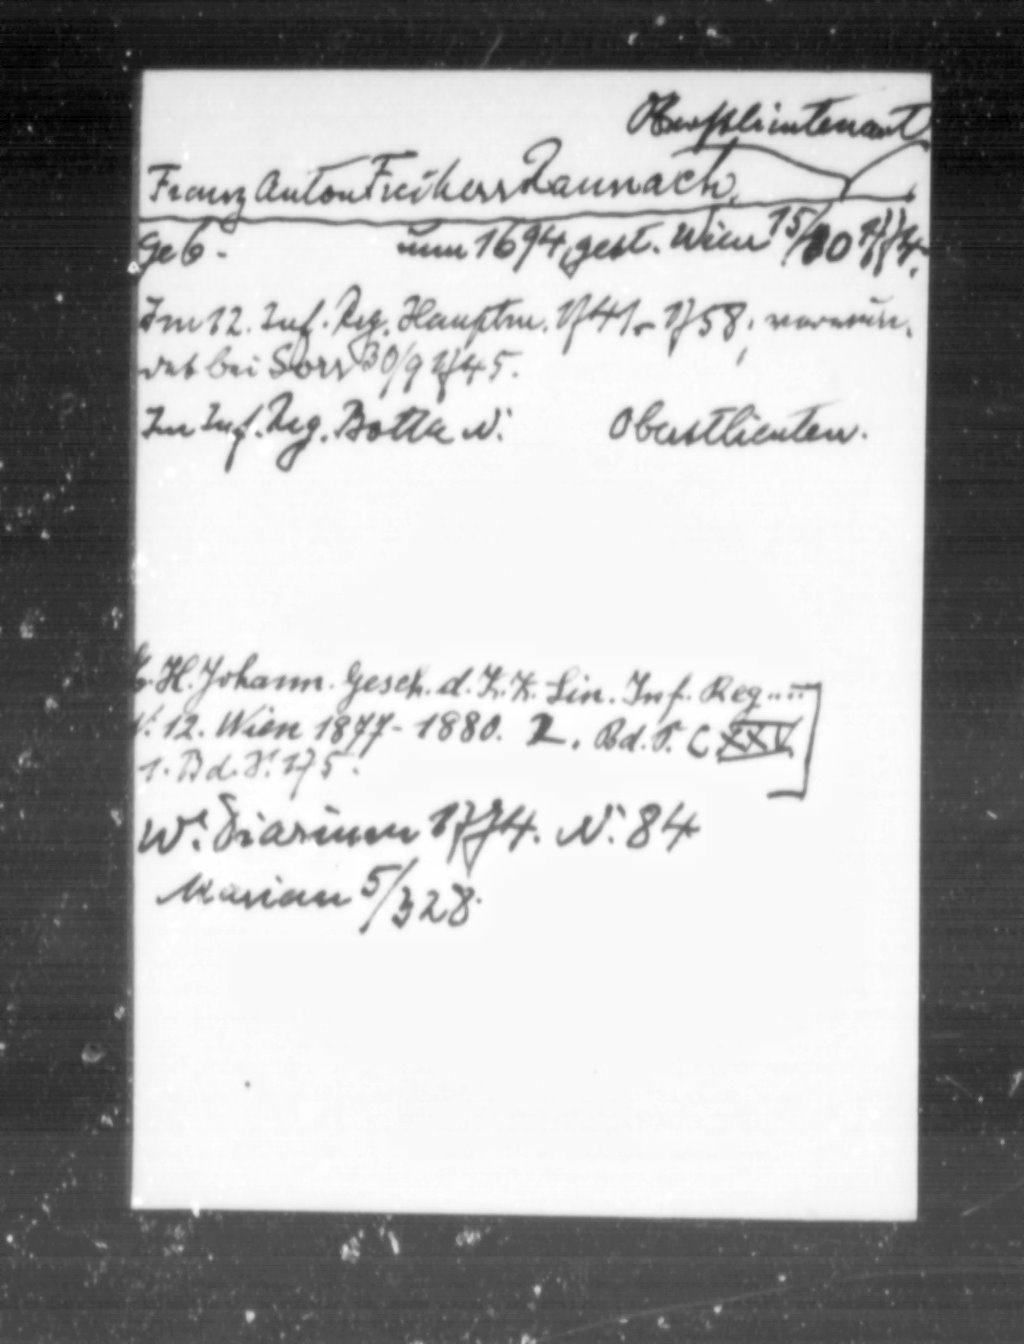 Oberstlieutenant
Franz Anton Freiherr Raunach,
Geb. um 1694, gest. Wien 15/10 1774.
Im 12. Inf. Reg. Hauptm. 1741 - 1758, verwun-
det bei Sorr 30/9 1745.
Im Inf. Reg. Botta N: Oberstlieuten.
E. H. Johann. Gesch. d. K. K. Lin. Inf. Reg...
N: 12. Wien 1877 - 1880. 2. Bd. S. C XXV
1. Bd. S. 175.
W: Diarium 1774. N: 84
Marian 5/328.